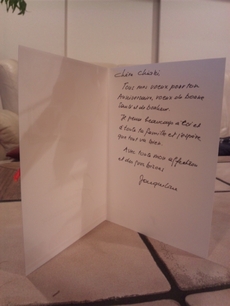 Tous mes vœux pour ton
Anniversaire, vœux de bonne
Santé et de bonheur.
Je pense beaucoup à toi et
à toute ta famille et j'espère
que tout va bien.
Avec toute mon affection
et de gros bisous